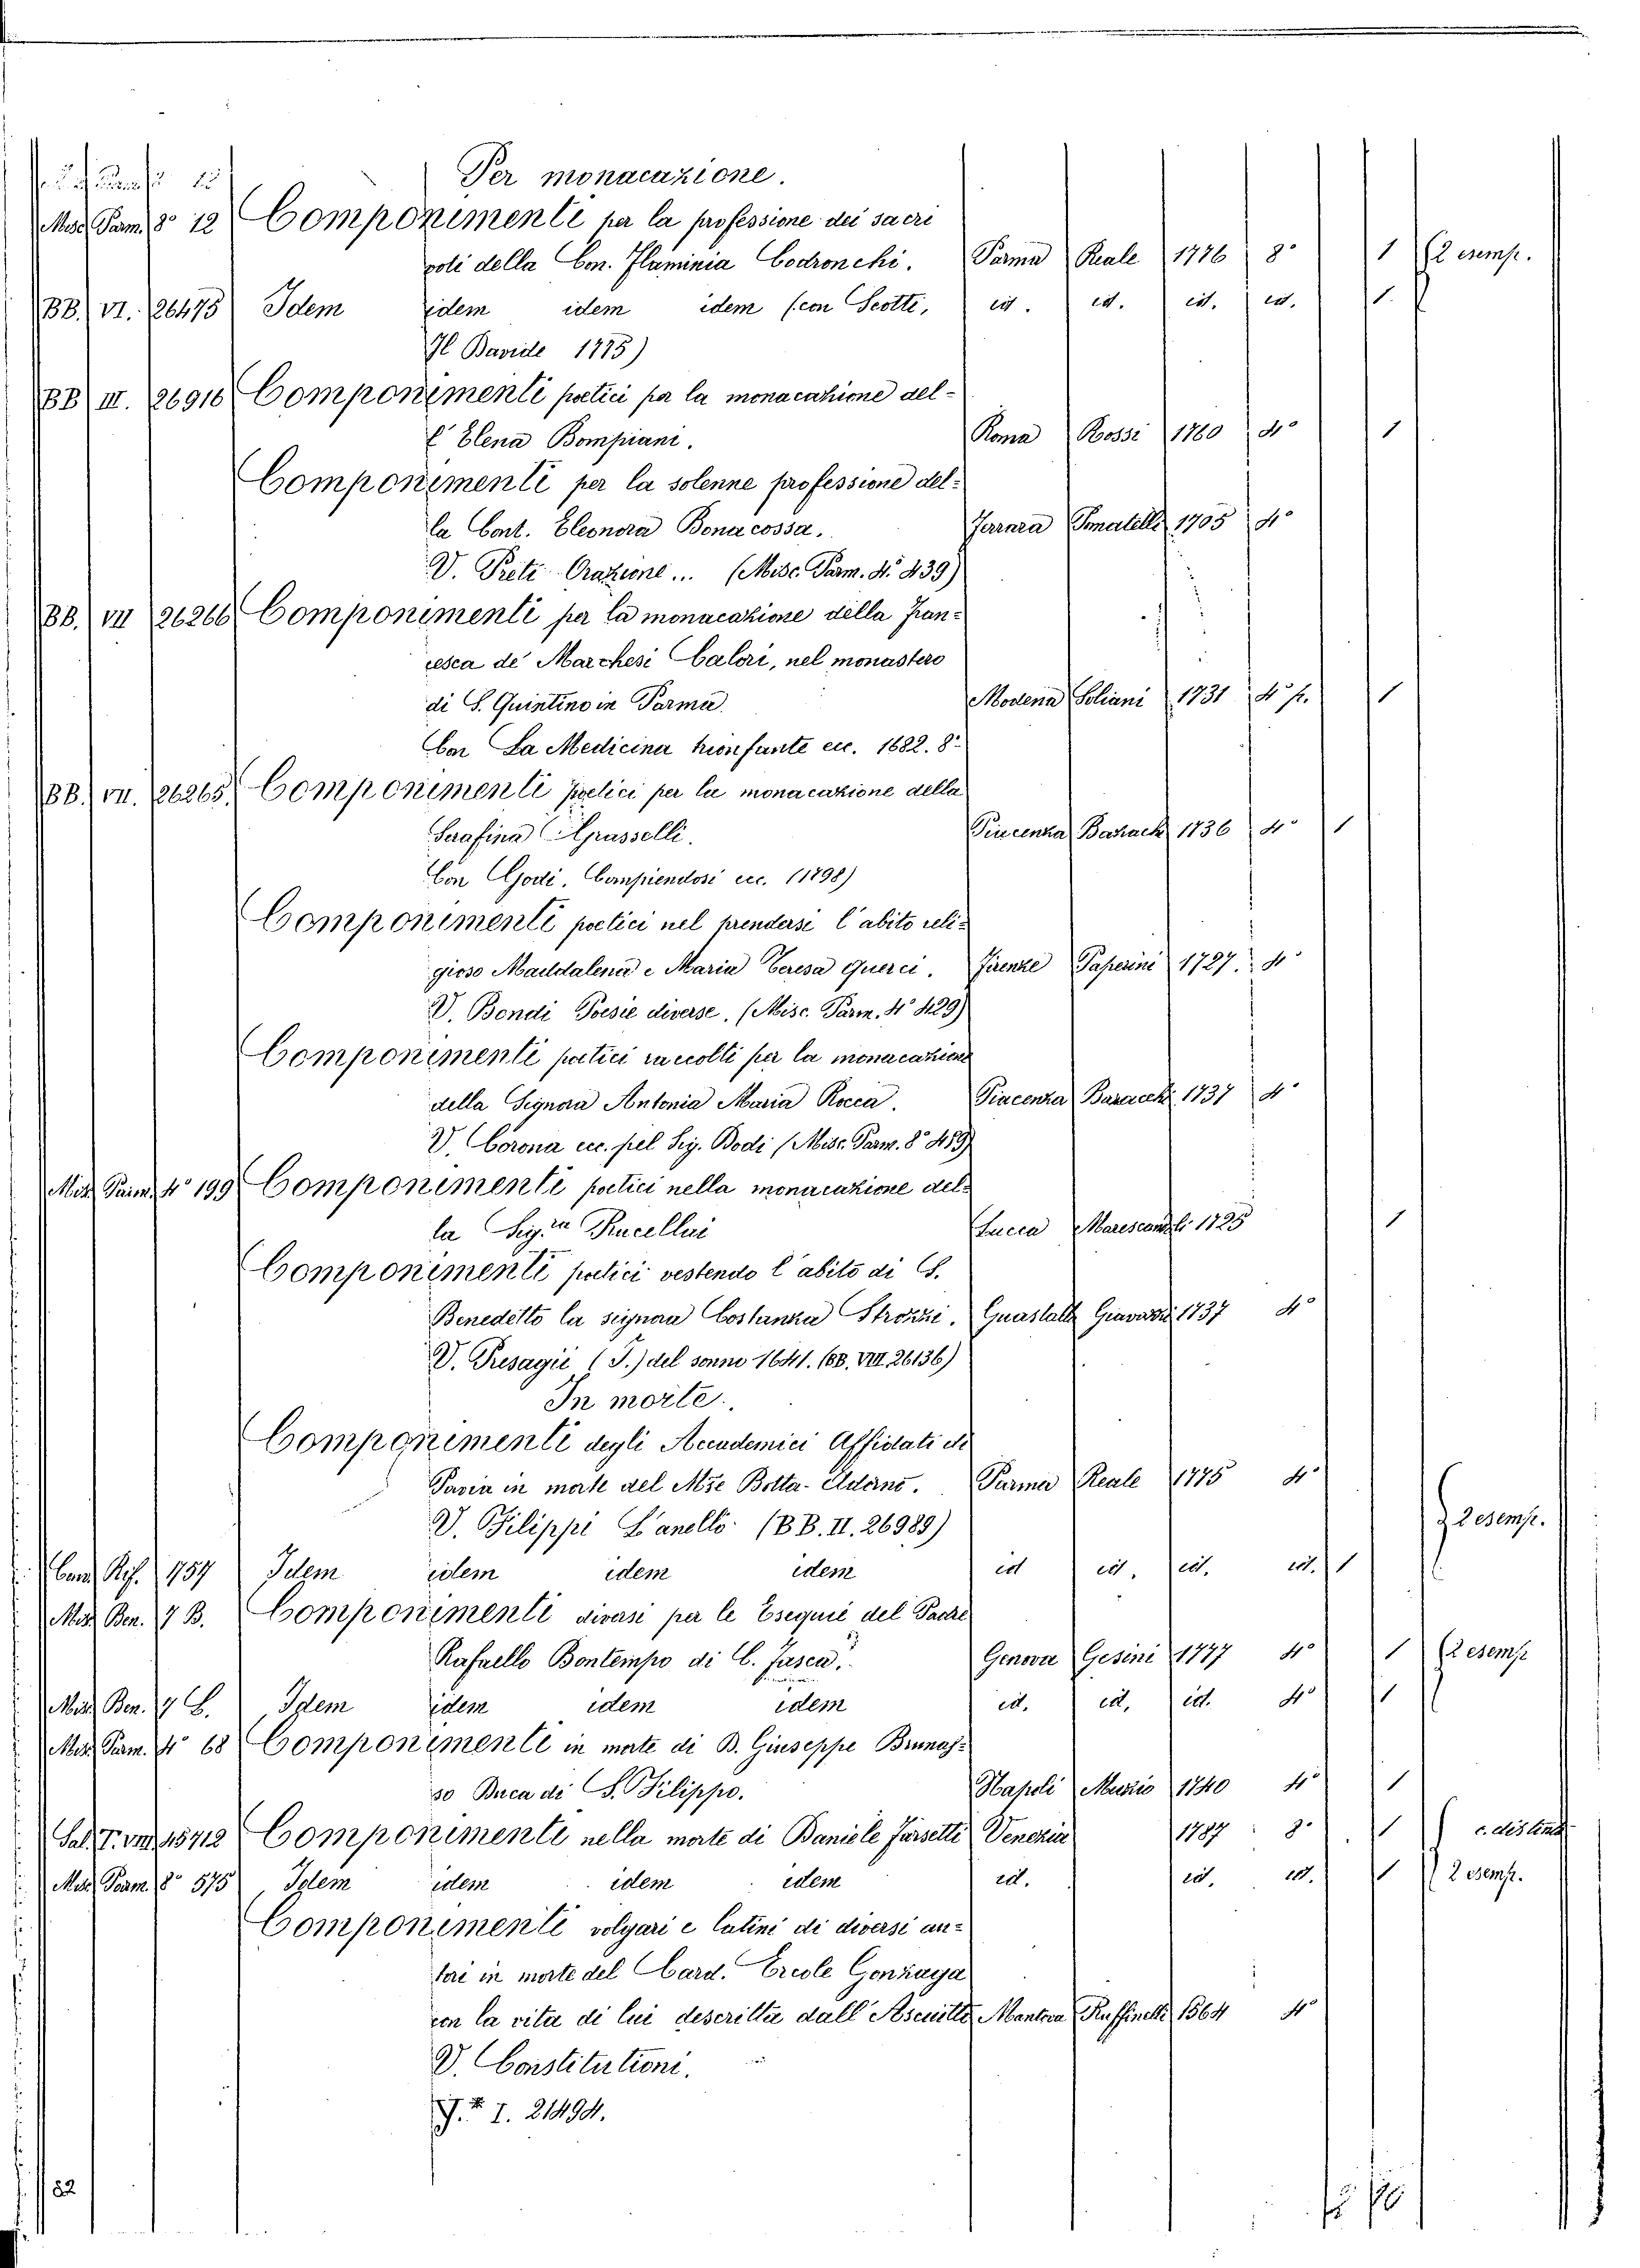 Per monacazione.
Misc. Parm. 8° 12 Componimenti per la professione dei sacri
voti della Con. Flaminia Codronchi. Parma Reale 1776 8° 1 2 esemp.
BB. VI. 26475 Idem idem idem idem (con Scotti, id. id. id. id. 1
Il Davide 1775)
BB III. 26916 Componimenti poetici per la monacazione del-
l'Elena Bompiani. Roma Rossi 1760 4° 1
Componimenti per la solenne professione del-
la Cont. Eleonora Bonacossa. Ferrara Pomatelli 1705 4°
V. Preti Orazione... (Misc. Parm. 4° 439)
BB. VII 26266 Componimenti per la monacazione della Fran-
cesca de' Marchesi Calori, nel monastero
di S. Quintino in Parma. Modena Soliani 1731 4° p. 1
Con La Medicina trionfante ecc. 1682. 8°
BB. VII. 26265. Componimenti poetici per la monacazione della
Serafina Grasselli. Piacenza Bazach 1736 4° 1
Con Godi, Compiendosi ecc. (1798)
Componimenti poetici nel prendersi l'abito reli-
gioso Maddalena e Maria Teresa Querci. Firenze Paperini 1727. 4°
V. Bondi Poesie diverse. (Misc. Parm. 4° 429)
Componimenti poetici raccolti per la monacazione
della Signora Antonia Maria Rocca. Piacenza Bazach 1737 4°
V. Corona ecc. pel Sig. Bodi (Misc. Parm. 8° 459)
Misc. Parm. 4° 199 Componimenti poetici nella monacazione del-
la Sig.ra Rucellai Lucca Marescandoli 1725 1
Componimenti poetici vestendo l'abito di S.
Benedetto la signora Costanza Strozzi. Guastalla Giavazzi 1737 4°
V. Presagii (I.) del sonno 1641. (BB. VIII. 26136)
In morte.
Componimenti degli Accademici Affidati di
Pavia in morte del Mse Botta-Adorno. Parma Reale 1775 4°
V. Filippi L'anello (BB. II. 26989) 2 esemp.
Cam. Rif. 1757 Idem idem idem idem id id. id. id. 1
Misc. Ben. 7 B. Componimenti diversi per le Esequie del Padre
Rafaello Bontempo di C. Fasca. Genova Gesini 1777 4° 1 2 esemp
Misc. Ben. 7 C. Idem idem idem idem id. id. id. 4° 1
Misc. Parm. 4° 68 Componimenti in morte di B. Giuseppe Brunas-
so Duca di S. Filippo. Napoli Muzio 1740 4° 1
Sal. T. VIII 15712 Componimenti nella morte di Daniele Farsetti Venezia 1787 8° 1
Misc. Parm. 8° 575 Idem idem idem idem id. id. id. 1 2 esemp.
Componimenti volgari e latini di diversi au-
tori in morte del Card. Ercole Gonzaga
con la vita di lui descritta dall'Asciutti. Mantova Ruffinelli 1564 4°
V. Constitutioni.
I. 21494.
82